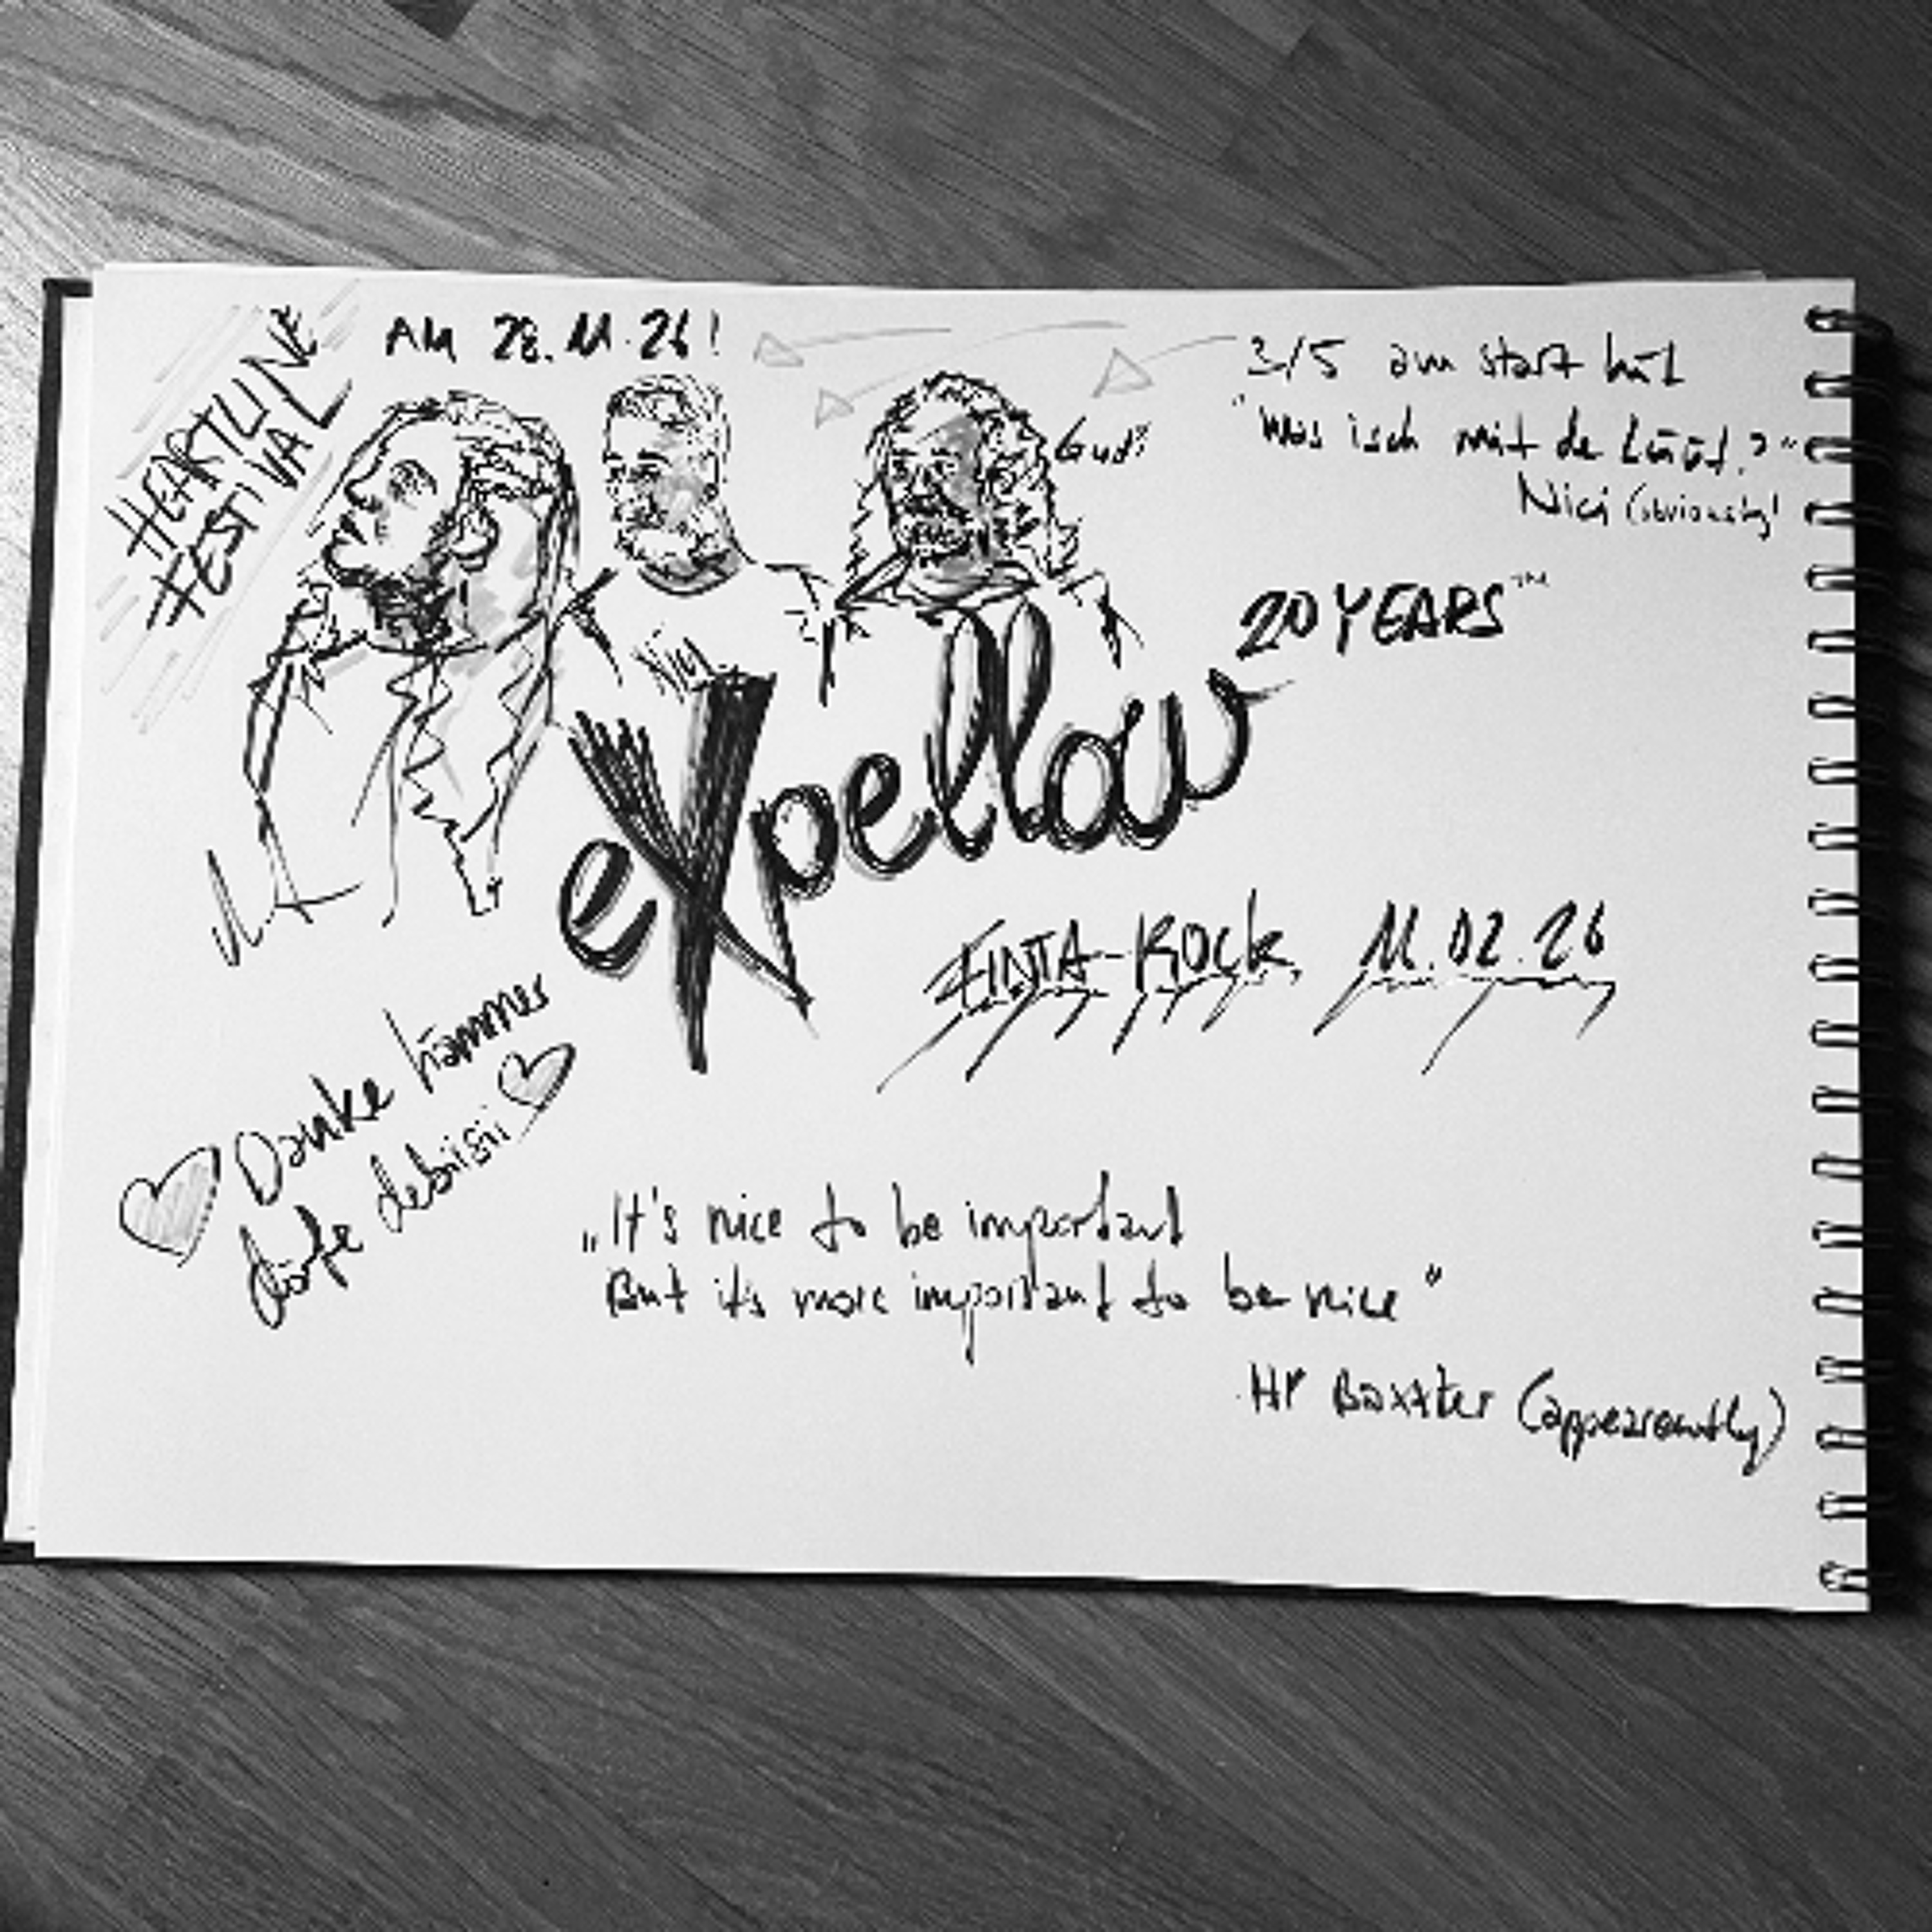 HEARTLINE
FESTIVAL
AM 28.11.26!
3/5 am start hüt
"Was isch mit de Lüüt?"
Nici (obviously)
Gudi
Nici
20 YEARS™
eXpellow
ZINTTA-ROCK, 11.02.26
Danke hämmer
dörfe debiisii
„It's nice to be important
But it's more important to be nice"
HP Baxxter (appearently)